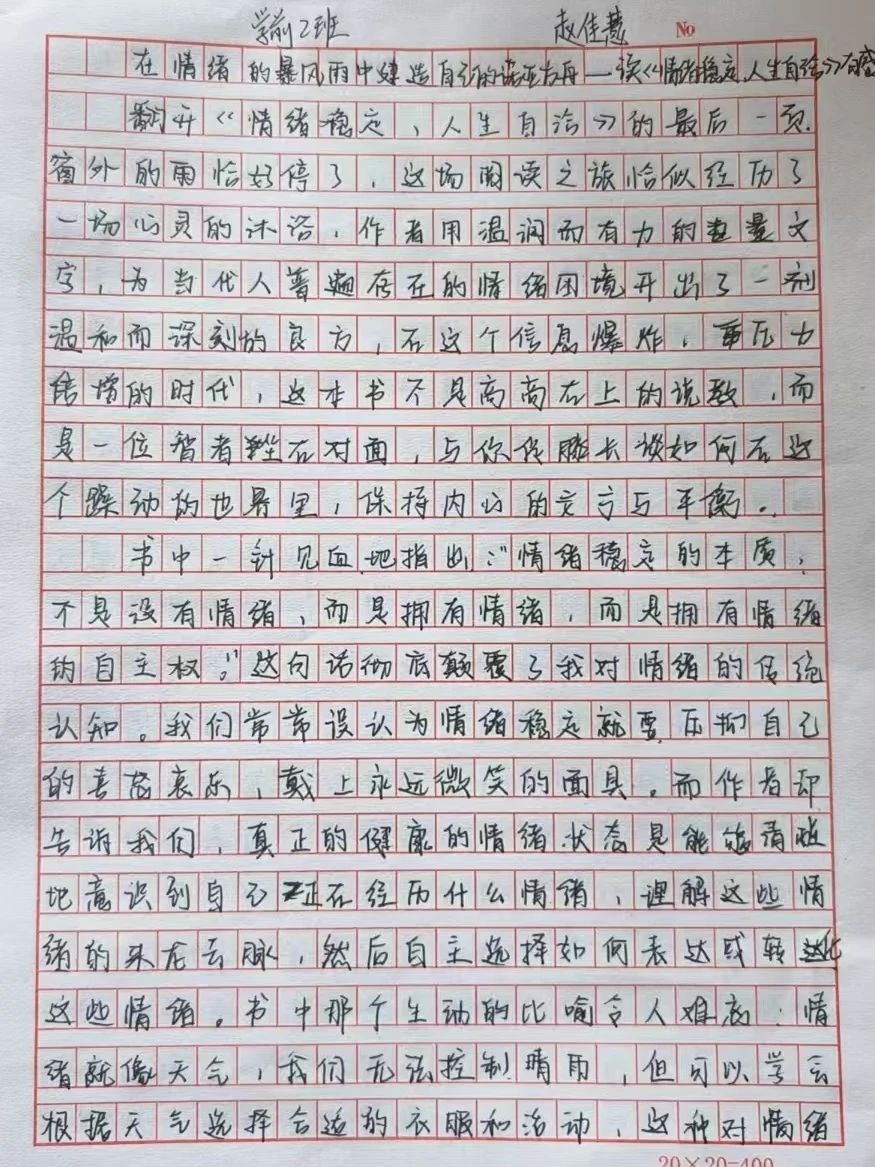 学前2班 赵佳慧 No
在情绪的暴风雨中建造自己的诺亚方舟——读《情绪稳定,人生自洽》有感
翻开《情绪稳定,人生自洽》的最后一页.
窗外的雨恰好停了,这场阅读之旅恰似经历了
一场心灵的沐浴,作者用温润而有力的 文
字,为当代人普遍存在的情绪困境开出了一剂
温和而深刻的良方,在这个信息爆炸,压力
倍增的时代,这本书不是高高在上的说教,而
是一位智者坐在对面,与你促膝长谈如何在这
个躁动的世界里,保持内心的安宁与平衡.
书中一针见血地指出:"情绪稳定的本质,
不是没有情绪,而是拥有情绪,而是拥有情绪
的自主权。"这句话彻底颠覆了我对情绪的传统
认知。我们常常误认为情绪稳定就要压抑自己
的喜怒哀乐,戴上永远微笑的面具。而作者却
告诉我们,真正的健康的情绪状态是能够清晰
地意识到自己正在经历什么情绪,理解这些情
绪的来龙去脉,然后自主选择如何表达或转化
这些情绪。书中那个生动的比喻令人难忘:情
绪就像天气,我们无法控制晴雨,但可以学会
根据天气选择合适的衣服和活动,这种对情绪
20×20=400